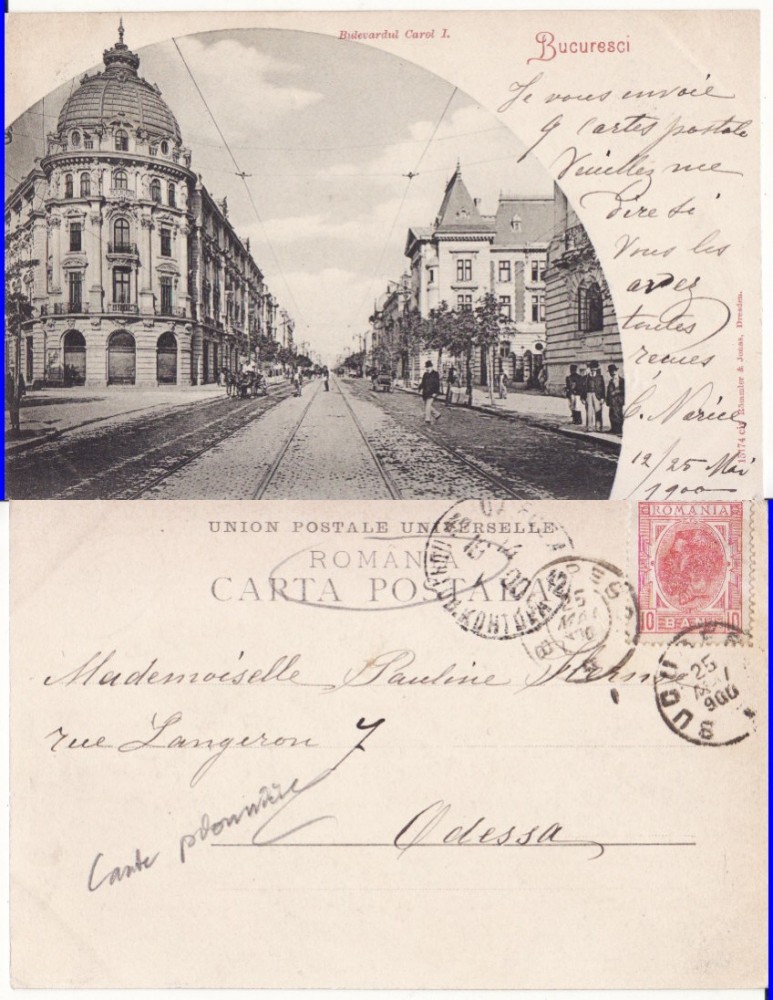 Bulevardul Carol I.
Bucuresci
Je vous envoie
9 cartes postale
Veuillez me
dire si
Vous les
avez
toutes
reçues
12/25 Mai
1900
15174 c Römmler & Jonas, Dresden.
UNION POSTALE UNIVERSELLE
ROMANIA
CARTA POSTALA
ROMANIA
10 BANI 10
25
MAI
900
Mademoiselle Pauline
rue Langeron 7
Odessa
Carte